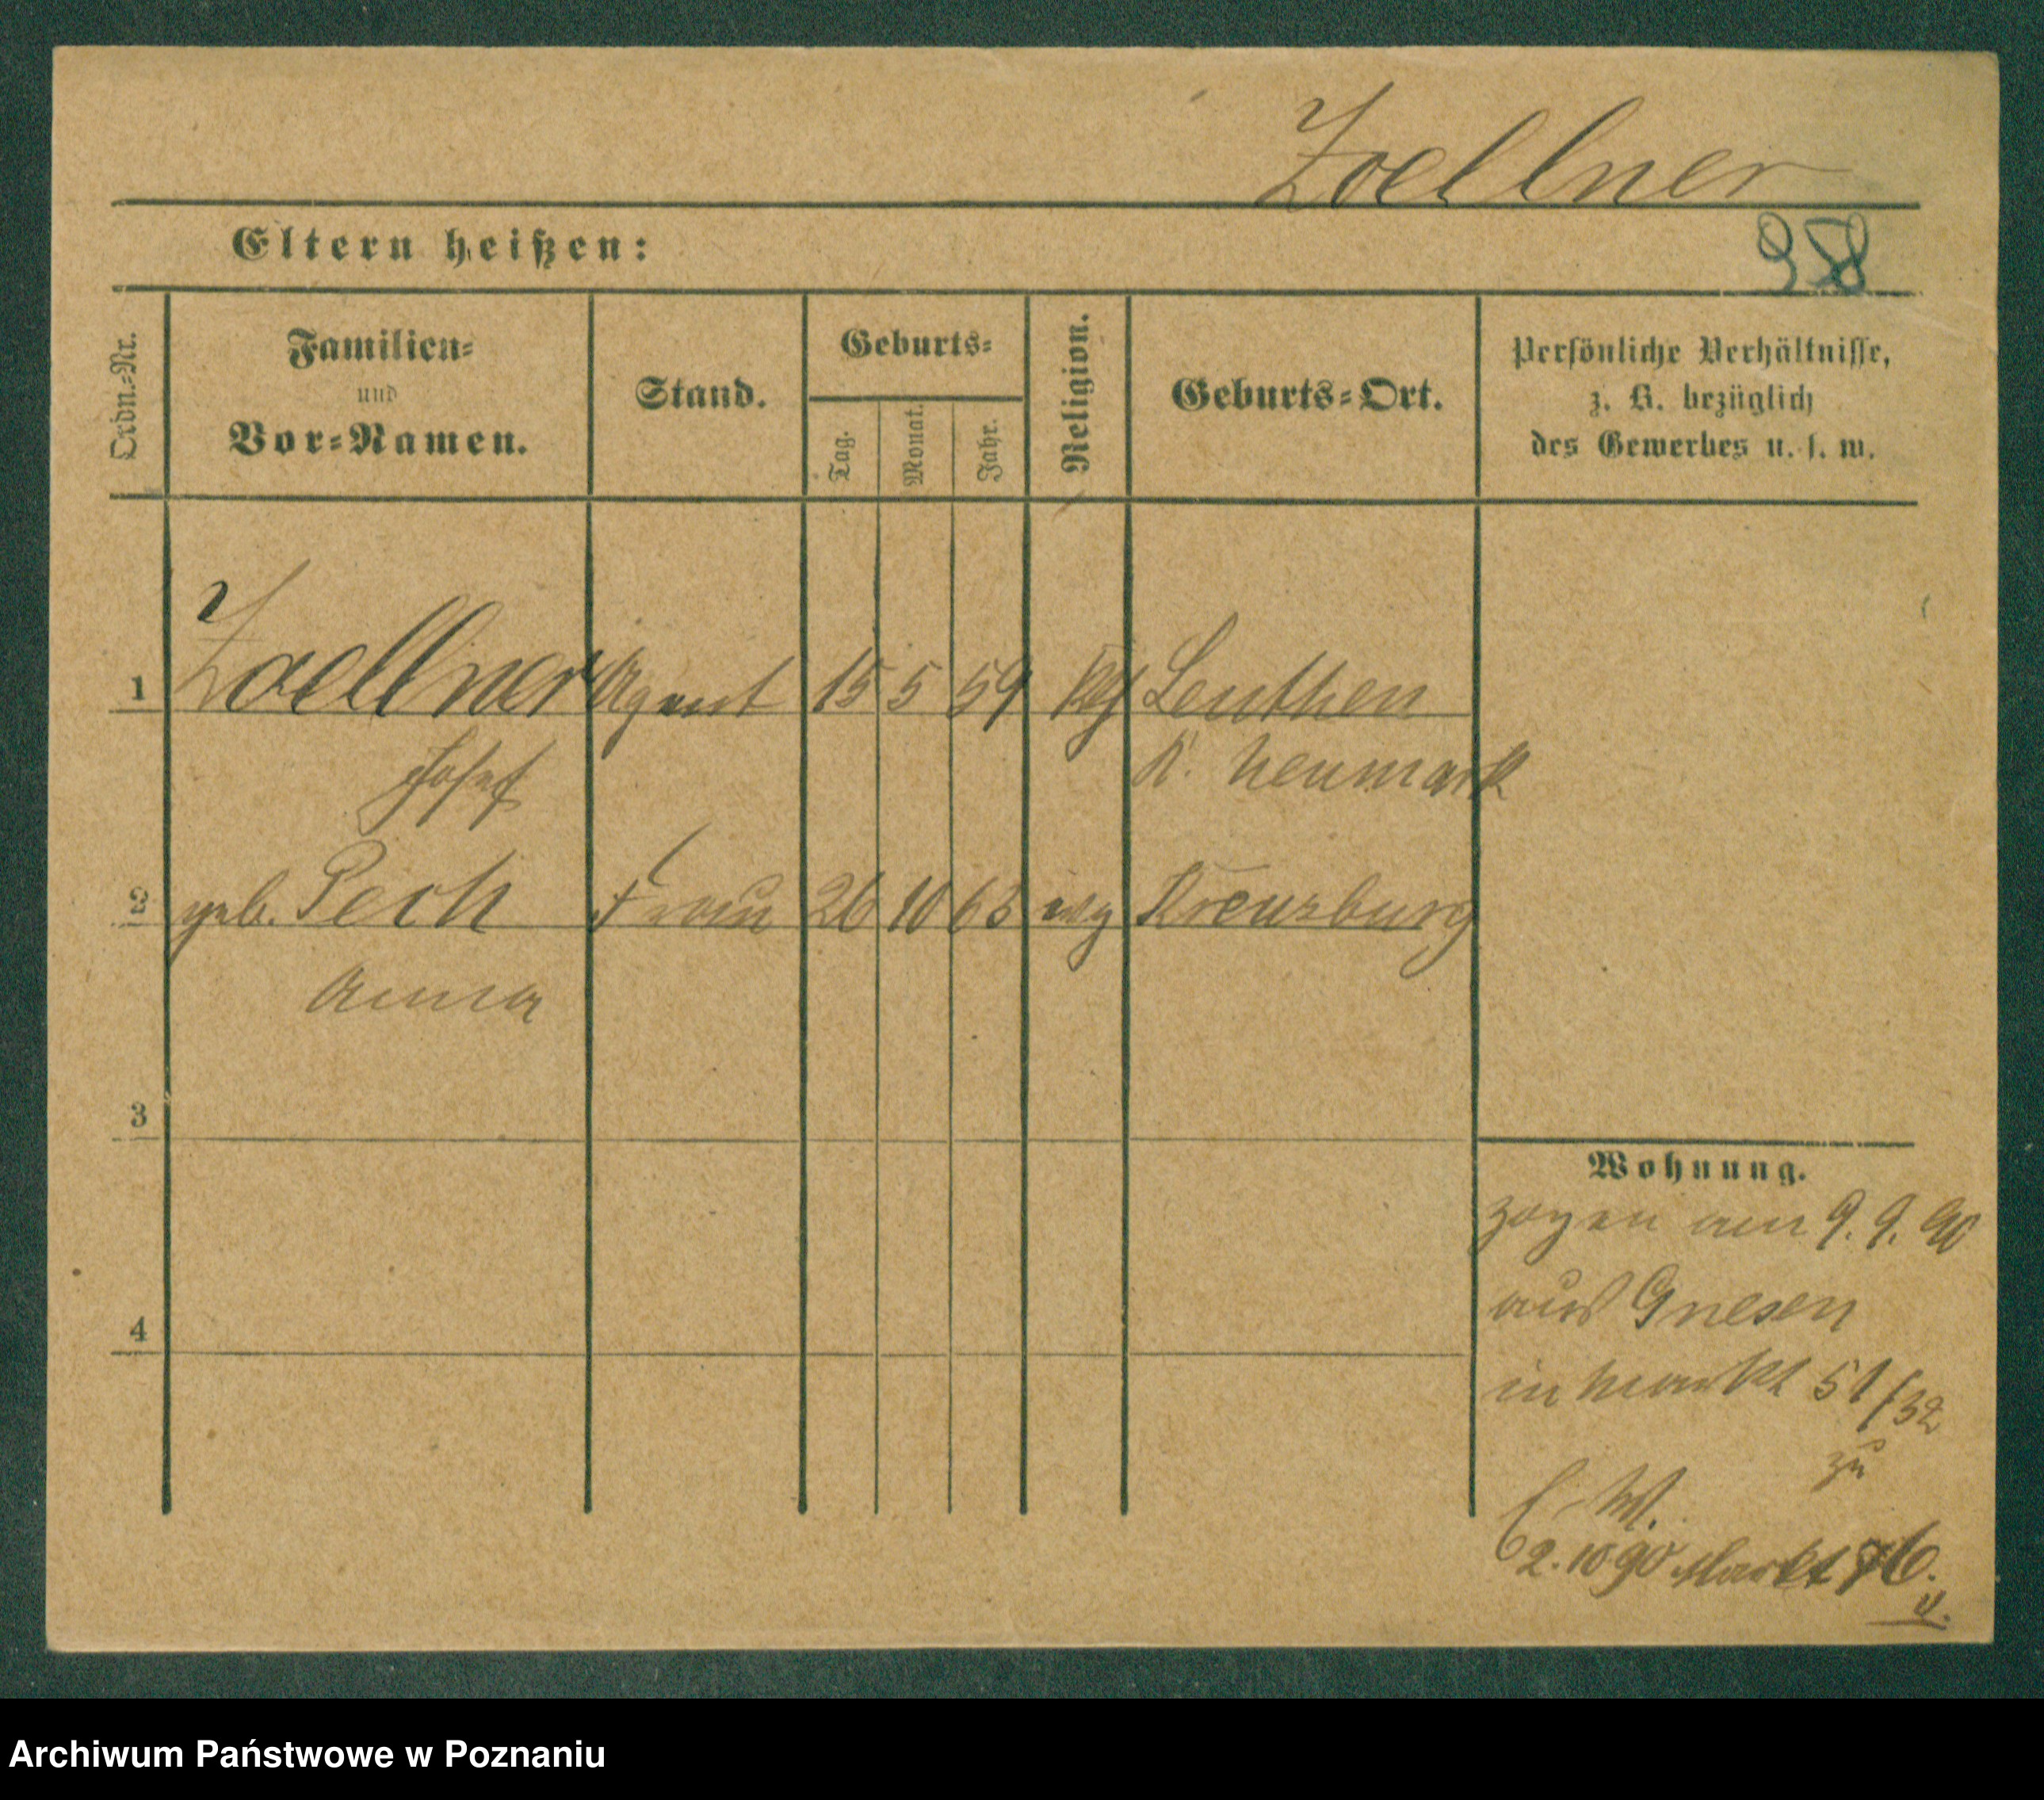 Zoellner
Eltern heißen:
98
Ordn.-Nr.
Familien-
und
Vor-Namen.
Stand.
Geburts-
Tag.
Monat.
Jahr.
Religion.
Geburts-Ort.
Persönliche Verhältnisse,
z. B. bezüglich
des Gewerbes u. s. w.
1 Zoellner Agent 15 5 59 Leuthen
Josef K. Neumark
2 geb. Pech Frau 26 10 63 evg Kreuzburg
Anna
3
4
Wohnung.
zogen am 9. 9. 90
aus Gnesen
in Markt 51/32
zu
2. 10 90 Markt 76.
Archiwum Państwowe w Poznaniu